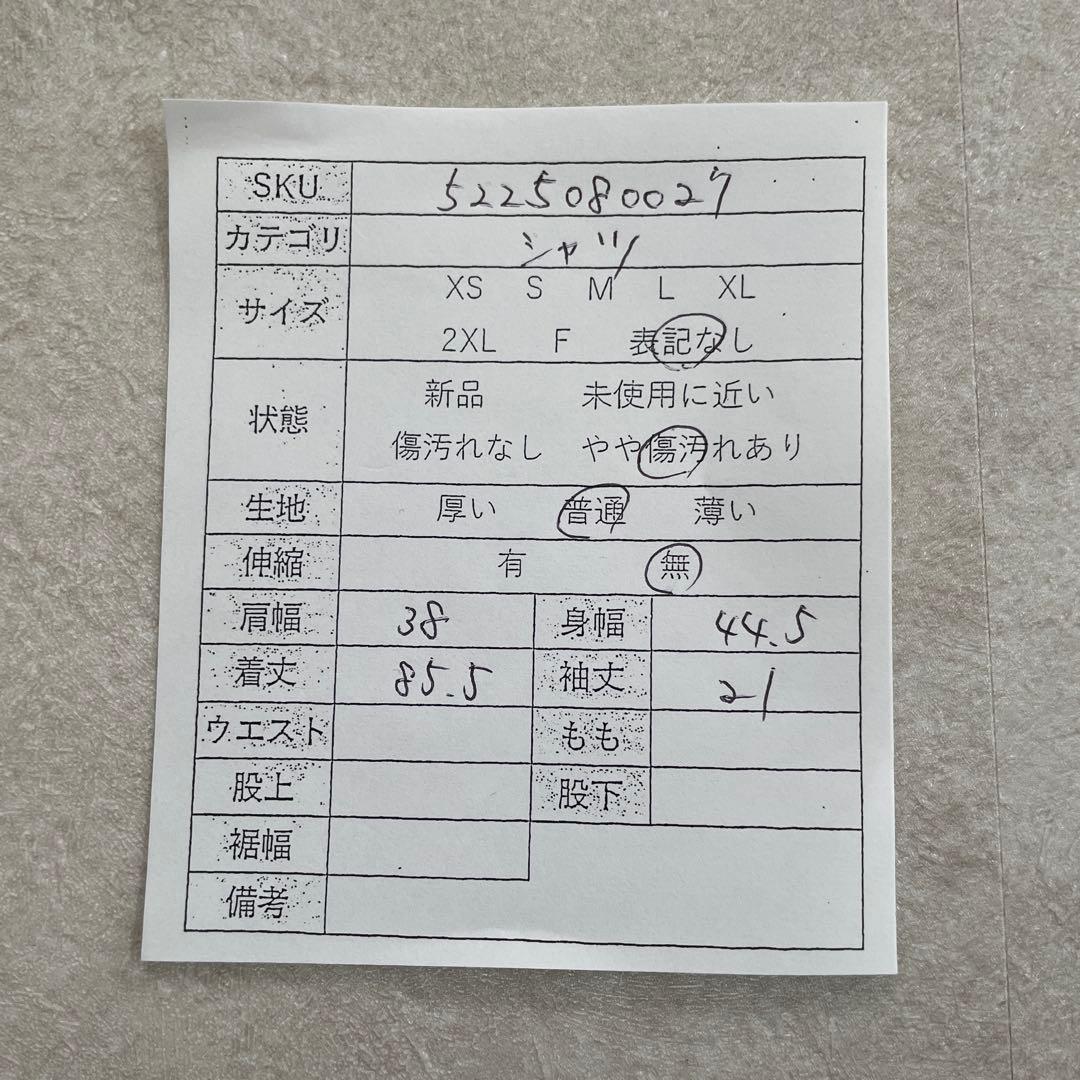 SKU 5225080027
カテゴリ シャツ
サイズ XS S M L XL
2XL F 表記なし
状態 新品 未使用に近い
傷汚れなし やや傷汚れあり
生地 厚い 普通 薄い
伸縮 有 無
肩幅 38 身幅 44.5
着丈 85.5 袖丈 21
ウエスト もも
股上 股下
裾幅
備考